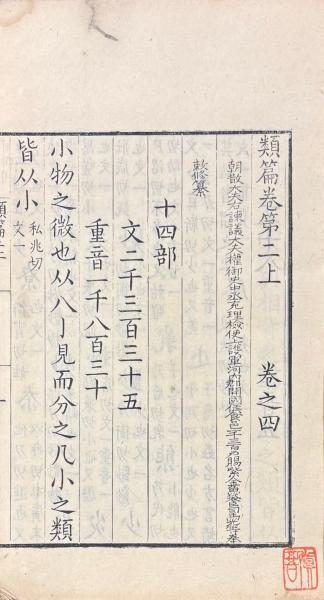 類篇卷第二上　卷之四
朝散大夫右諫議大夫權御史中丞充理檢使上護軍河內郡開國侯食邑一千三百戶賜紫金魚袋臣司馬光等奉
敕修纂
十四部
文二千三百三十五
重音一千八百三十
小物之微也从八丨見而分之凡小之類
皆从小私兆切
文一
類篇二上